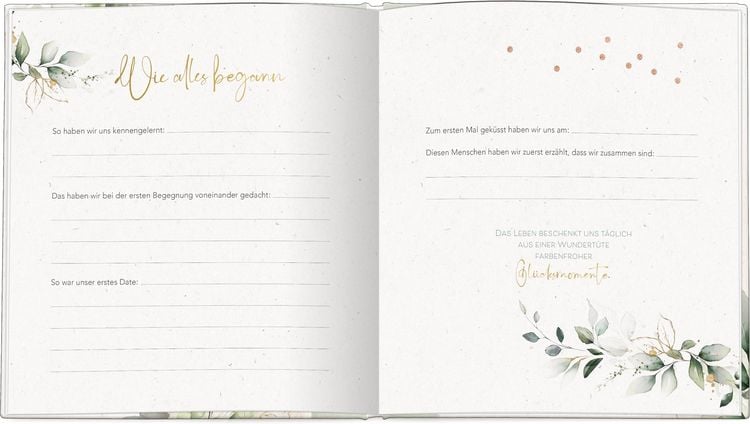 Wie alles begann
So haben wir uns kennengelernt:
Das haben wir bei der ersten Begegnung voneinander gedacht:
So war unser erstes Date:
Zum ersten Mal geküsst haben wir uns am:
Diesen Menschen haben wir zuerst erzählt, dass wir zusammen sind:
DAS LEBEN BESCHENKT UNS TÄGLICH
AUS EINER WUNDERTÜTE
FARBENFROHER
Glücksmomente.